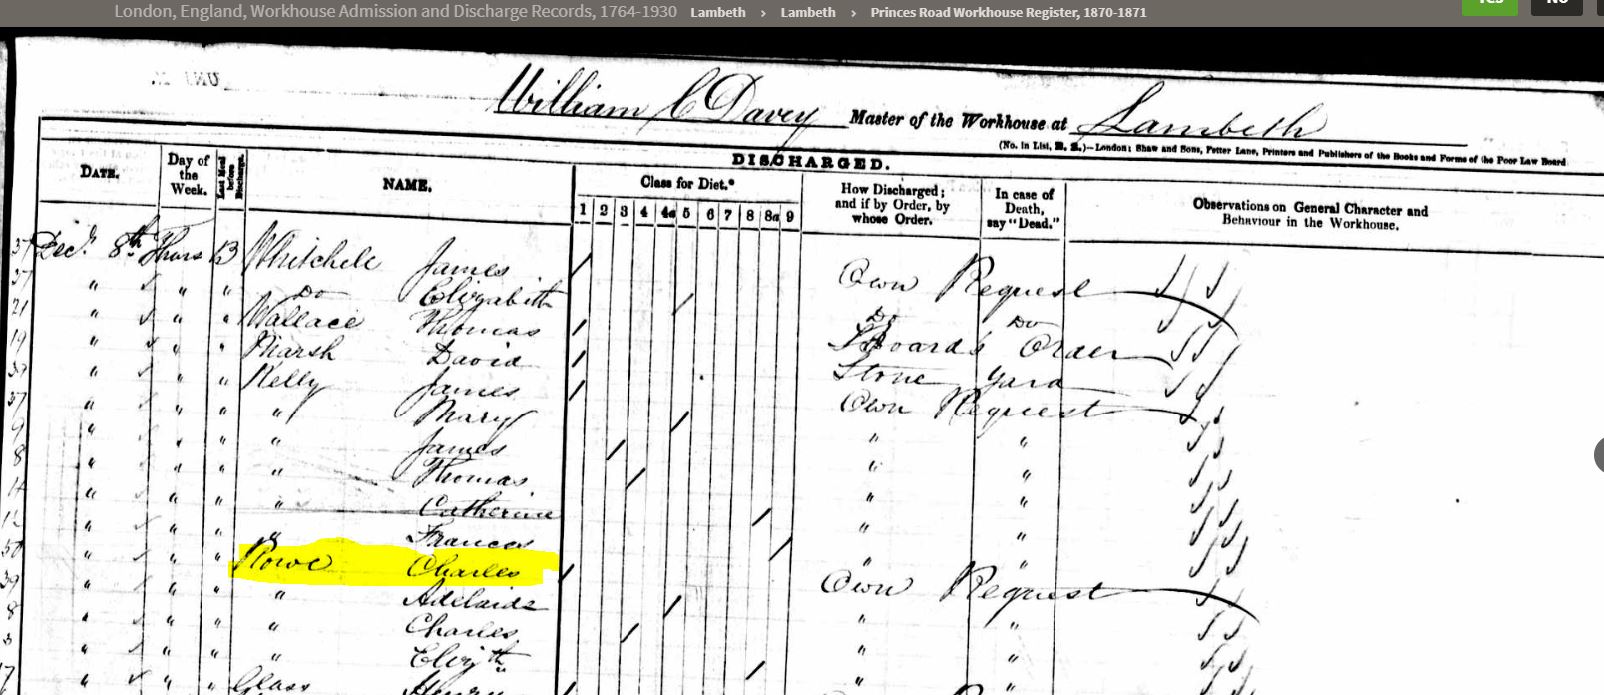 London, England, Workhouse Admission and Discharge Records, 1764-1930 Lambeth › Lambeth › Princes Road Workhouse Register, 1870-1871
YES NO
William C Davey Master of the Workhouse at Lambeth
(No. in List, B. 2.)—London: Shaw and Sons, Fetter Lane, Printers and Publishers of the Books and Forms of the Poor Law Board
DISCHARGED.
DATE. Day of the Week. Last Meal before Discharge. NAME. Class for Diet.* How Discharged; and if by Order, by whose Order. In case of Death, say "Dead." Observations on General Character and Behaviour in the Workhouse.
1 2 3 4 4a 5 6 7 8 8a 9
37 Decr 8th Thurs B Whitchele James / Own Request
37 " " " Do Elizabeth / Do Do
21 " " " Wallace Thomas / Board's Order
19 " " " Marsh David / Stone Yard
37 " " " Kelly James / Own Request
37 " " " " Mary / " "
9 " " " " James / " "
8 " " " " Thomas / " "
" " " " Catherine / " "
" " " " Frances / " "
50 " " " Rowe Charles / Own Request
39 " " " " Adelaide / " "
8 " " " " Charles / " "
3 " " " " Elizth / " "
7 " " " Glass Henry /